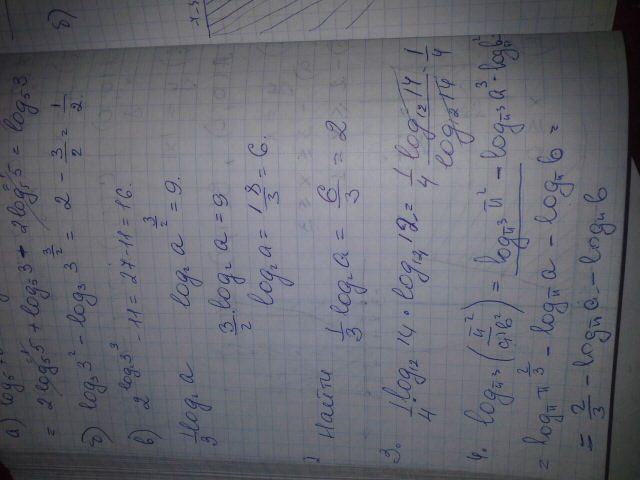 а) log₅
= 2log₅5 + log₅3 - 2log₅5 = log₅3
б) log₃3² - log₃3^(3/2) = 2 - 3/2 = 1/2.
в) 2^(log₂3³) - 11 = 27 - 11 = 16.
1/3 log₂a log₂a^(3/2) = 9.
3/2 · log₂a = 9
log₂a = 18/3 = 6.
Найти 1/3 log₂a = 6/3 = 2
3. 1/4 log₁₂14 · log₁₄12 = 1/4 · log₁₂14/log₁₂14 = 1/4
4. log_π³(π²/(a³b³)) = log_π³ π² - log_π³ a³ - log_π³ b³
= log_π π^(2/3) - log_π a - log_π b =
= 2/3 - log_π a - log_π b
б)